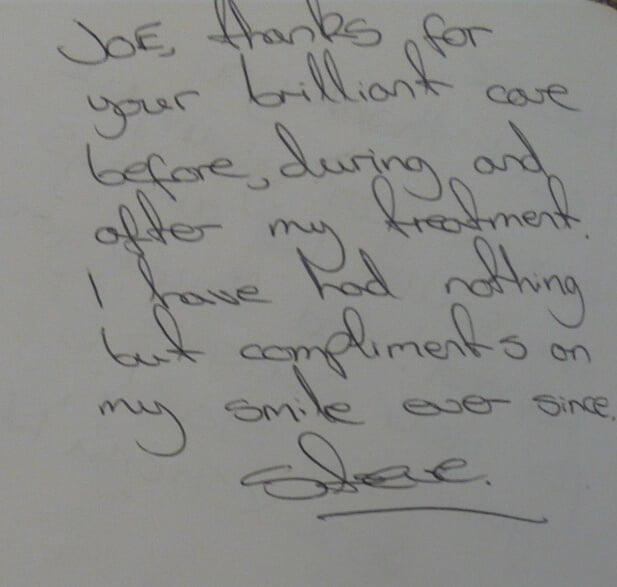 JOE, thanks for
your brilliant care
before, during and
after my treatment.
I have had nothing
but compliments on
my smile ever since.